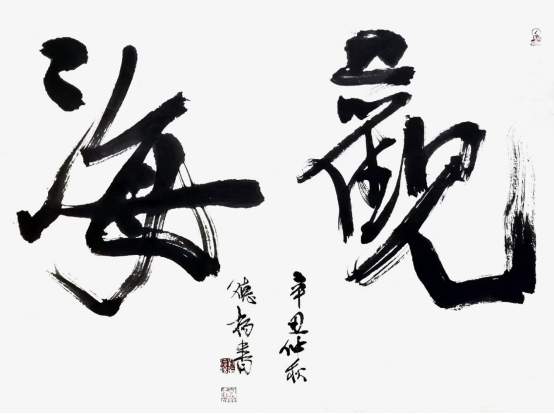 觀海
辛丑仲秋
德楊書